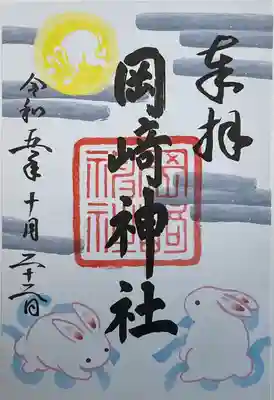 奉拝
岡﨑神社
岡﨑神社
令和五年十月二十二日